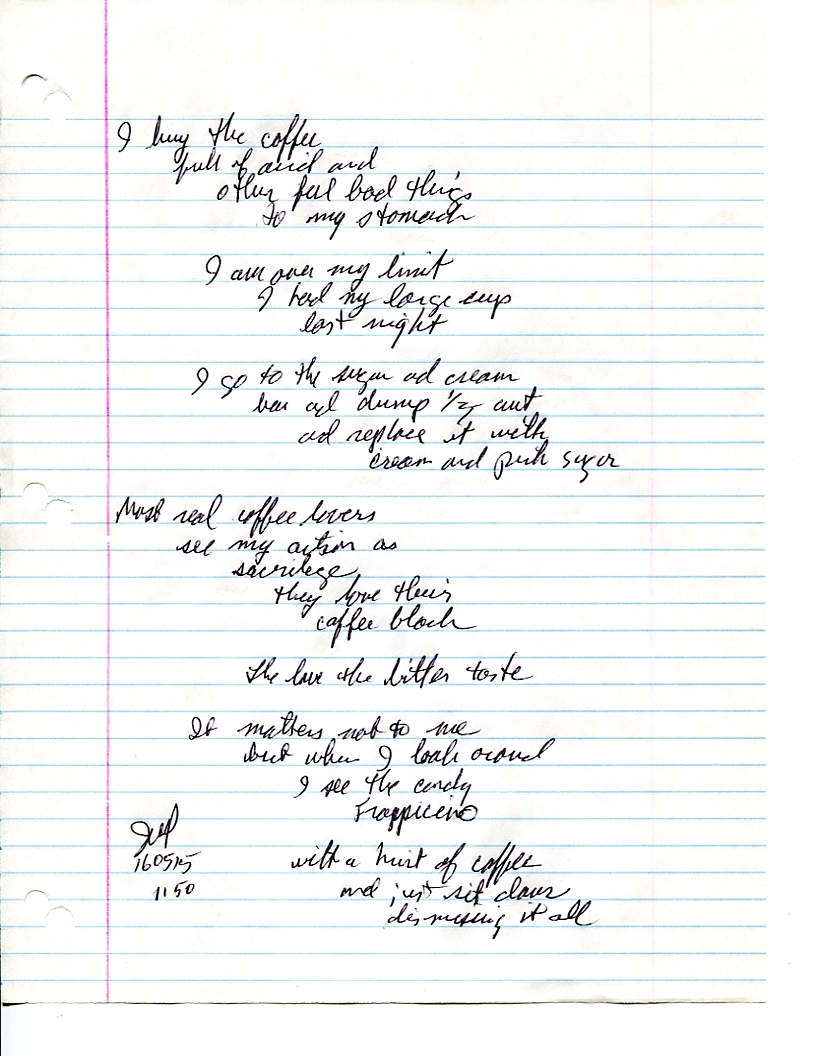 I buy the coffee
full of acid and
other feel bad things
to my stomach
I am over my limit
I had my large cup
last night
I go to the sugar ad cream
bar ad dump 1/2 out
ad replace it with
cream and pink sugar
Most real coffee lovers
see my action as
sacrilege
they love their
coffee black
The love the bitter taste
It matters not to me
but when I look around
I see the candy
Frappicino
160515
with a hint of coffee
1150
and just sit down
dismissing it all